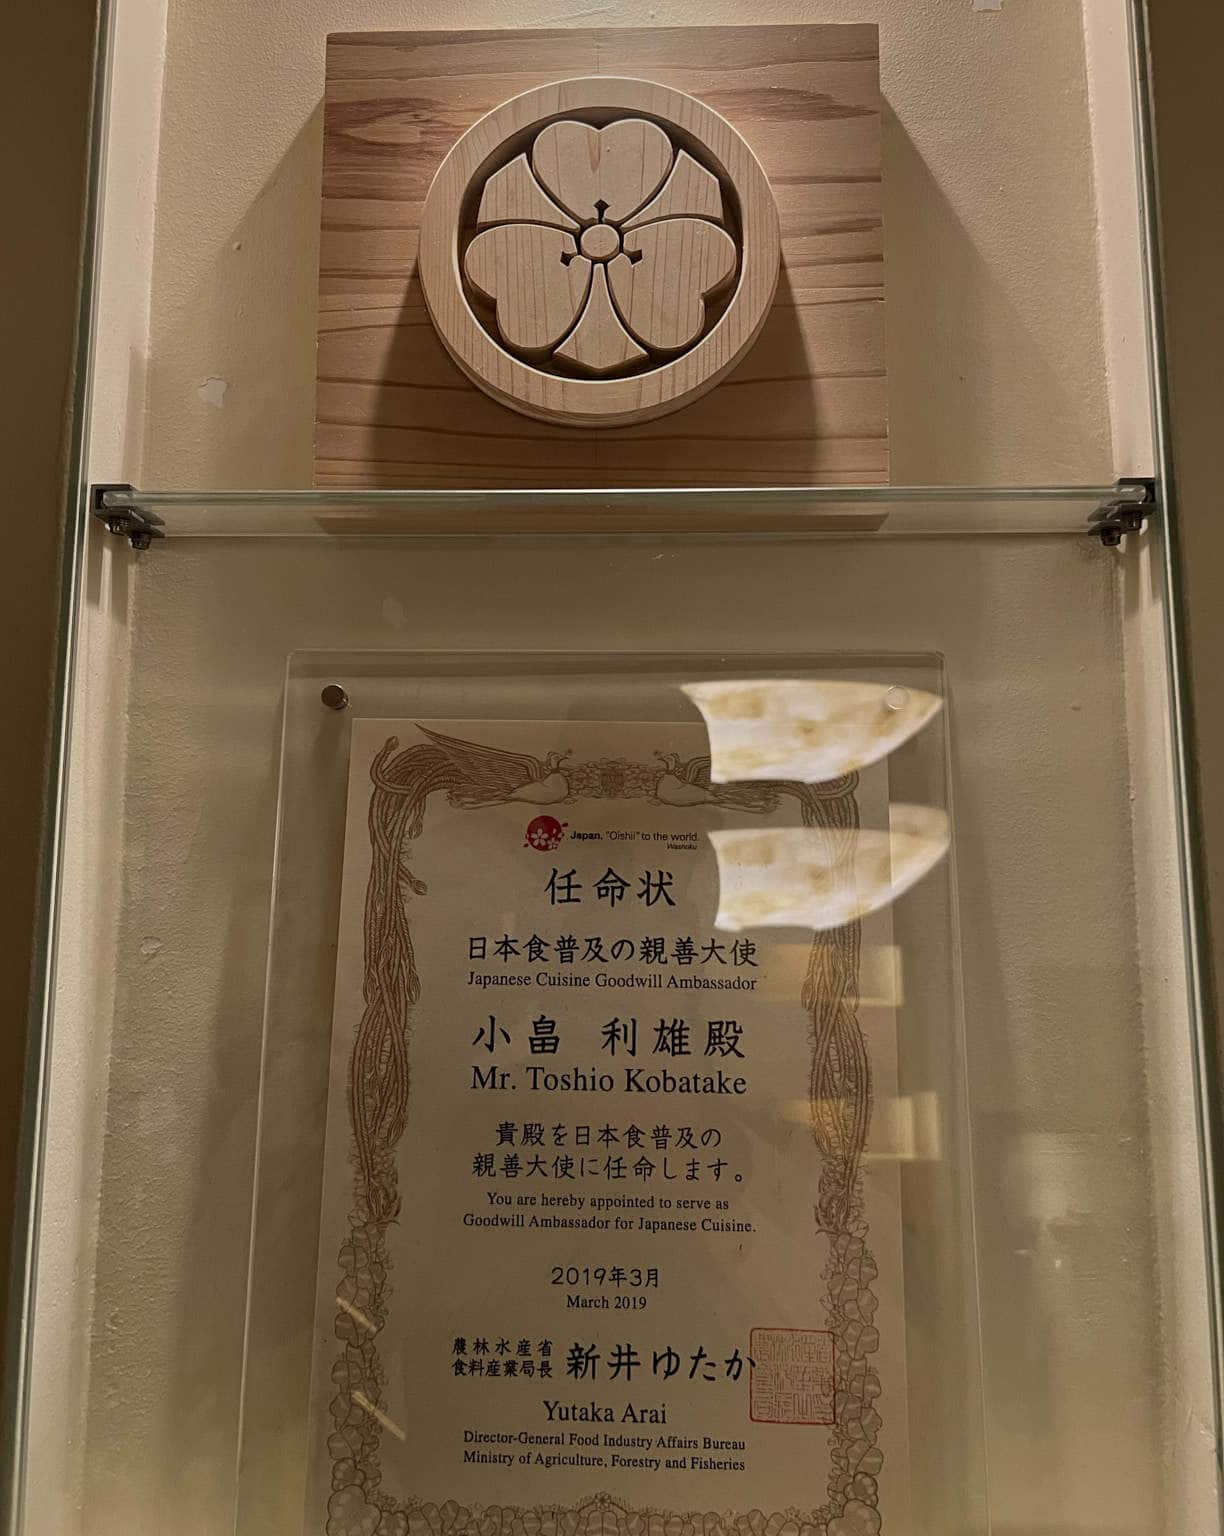 Japan. "Oishii" to the world.
Washoku
任命状
日本食普及の親善大使
Japanese Cuisine Goodwill Ambassador
小畠 利雄殿
Mr. Toshio Kobatake
貴殿を日本食普及の
親善大使に任命します。
You are hereby appointed to serve as
Goodwill Ambassador for Japanese Cuisine.
2019年3月
March 2019
農林水産省
食料産業局長 新井ゆたか
Yutaka Arai
Director-General Food Industry Affairs Bureau
Ministry of Agriculture, Forestry and Fisheries